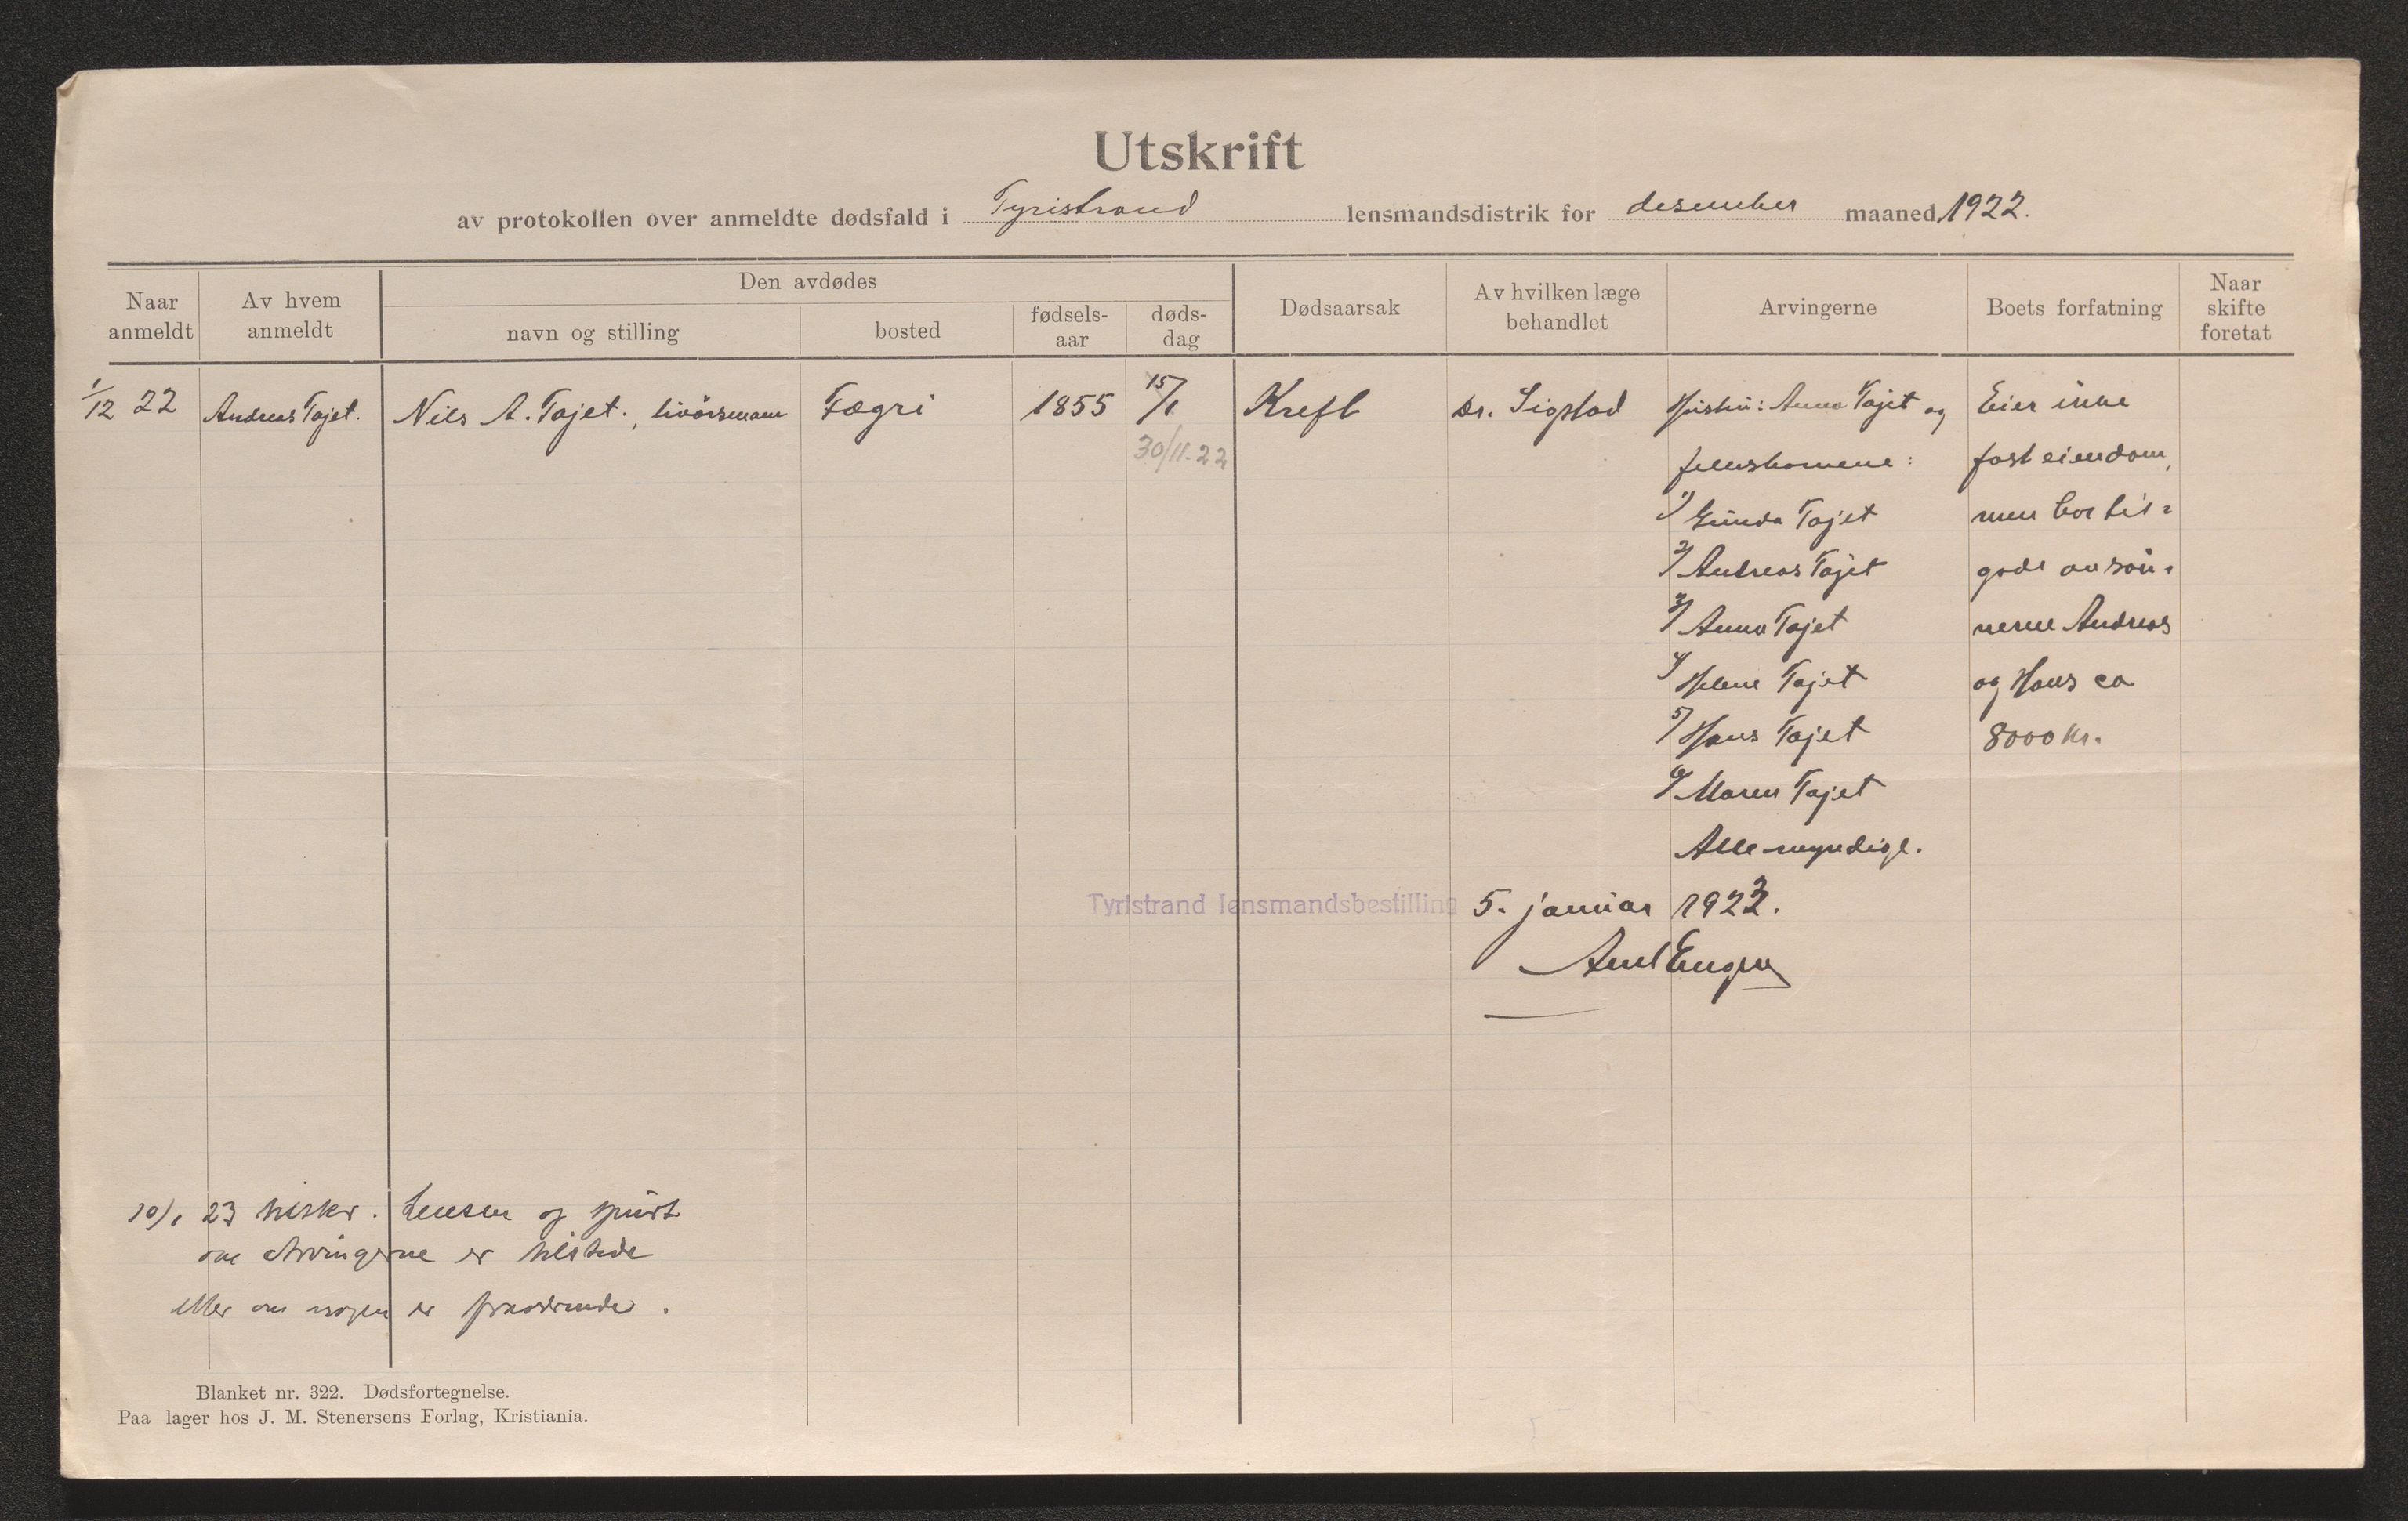 Utskrift
av protokollen over anmeldte dødsfald i Tyristrand lensmandsdistrik for desember maaned 1922.
Naar anmeldt
Av hvem anmeldt
Den avdødes
navn og stilling
bosted
fødsels-aar
døds-dag
Dødsaarsak
Av hvilken læge behandlet
Arvingerne
Boets forfatning
Naar skifte foretat
1/12 22 Andreas Tajet. Nils A. Tajet., livörsmann Fægri 1855 15/1 Kreft Dr. Sigstad Hustru: Anna Tajet og Eier inne
30/11-22 fellesbarnene: fast eiendom,
1/ Gunda Tajet men bor til=
2/ Andreas Tajet gode av sön-
3/ Anna Tajet nerne Andreas
4/ Helene Tajet og Hans ca
5/ Hans Tajet 8000 kr.
6/ Maren Tajet
Alle myndige.
Tyristrand lensmandsbestilling 5. januar 1923.
10/1 23 tilskr. Lensm og spurt
om Arvingerne er tilstede
eller om nogen er fraværende.
Blanket nr. 322. Dødsfortegnelse.
Paa lager hos J. M. Stenersens Forlag, Kristiania.